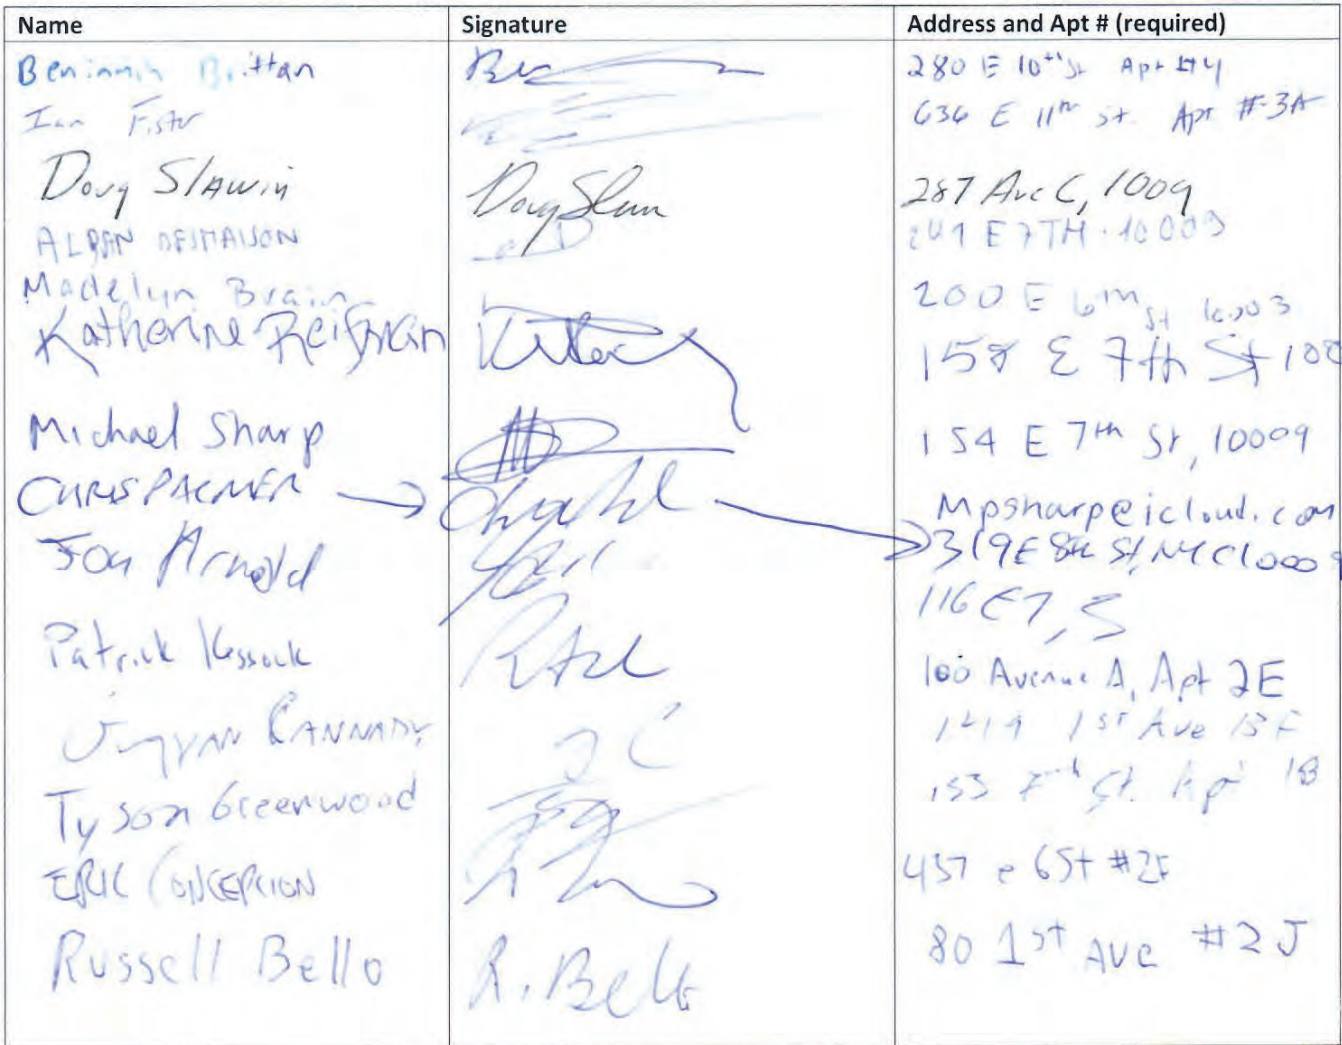 Name Signature Address and Apt # (required)
Benjamin Brittan 280 E 10th St Apt #4
Ian 636 E 11th St. Apt #3A
Doug Slawin Doug 287 Ave C, 1009
ALBAN DESMAISON E 7TH 10009
Madelyn Brain 200 E 6th St 10003
Katherine 158 E 7th St 100
Michael Sharp 154 E 7th St, 10009
CHRIS PALMER Mpsharp@icloud.com
Jon Arnold 319 E 8th St, NYC 10009
116 E 7, S
Patrick 100 Avenue A, Apt 2E
CANNADY 1st Ave
Tyson Greenwood 153 7th St. Apt 1B
ERIC CONCEPCION 437 e 6 St #2F
Russell Bello R. Bello 80 1st Ave #2J